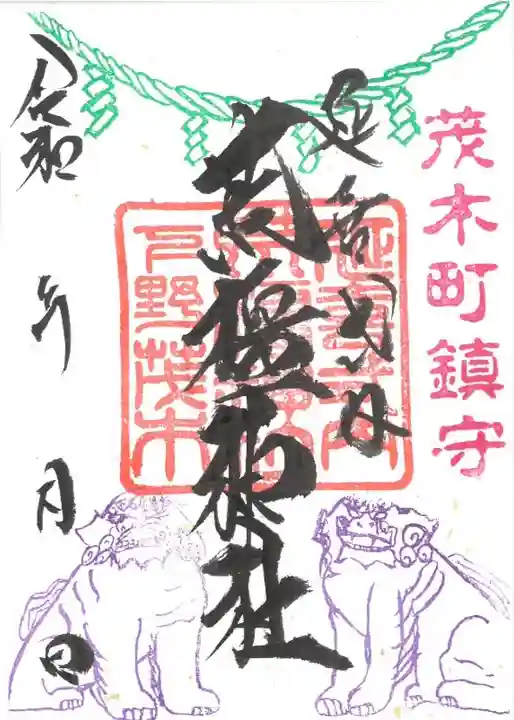 茂木町鎮守
延喜式内
荒橿神社
令和 年 月 日
下野茂木